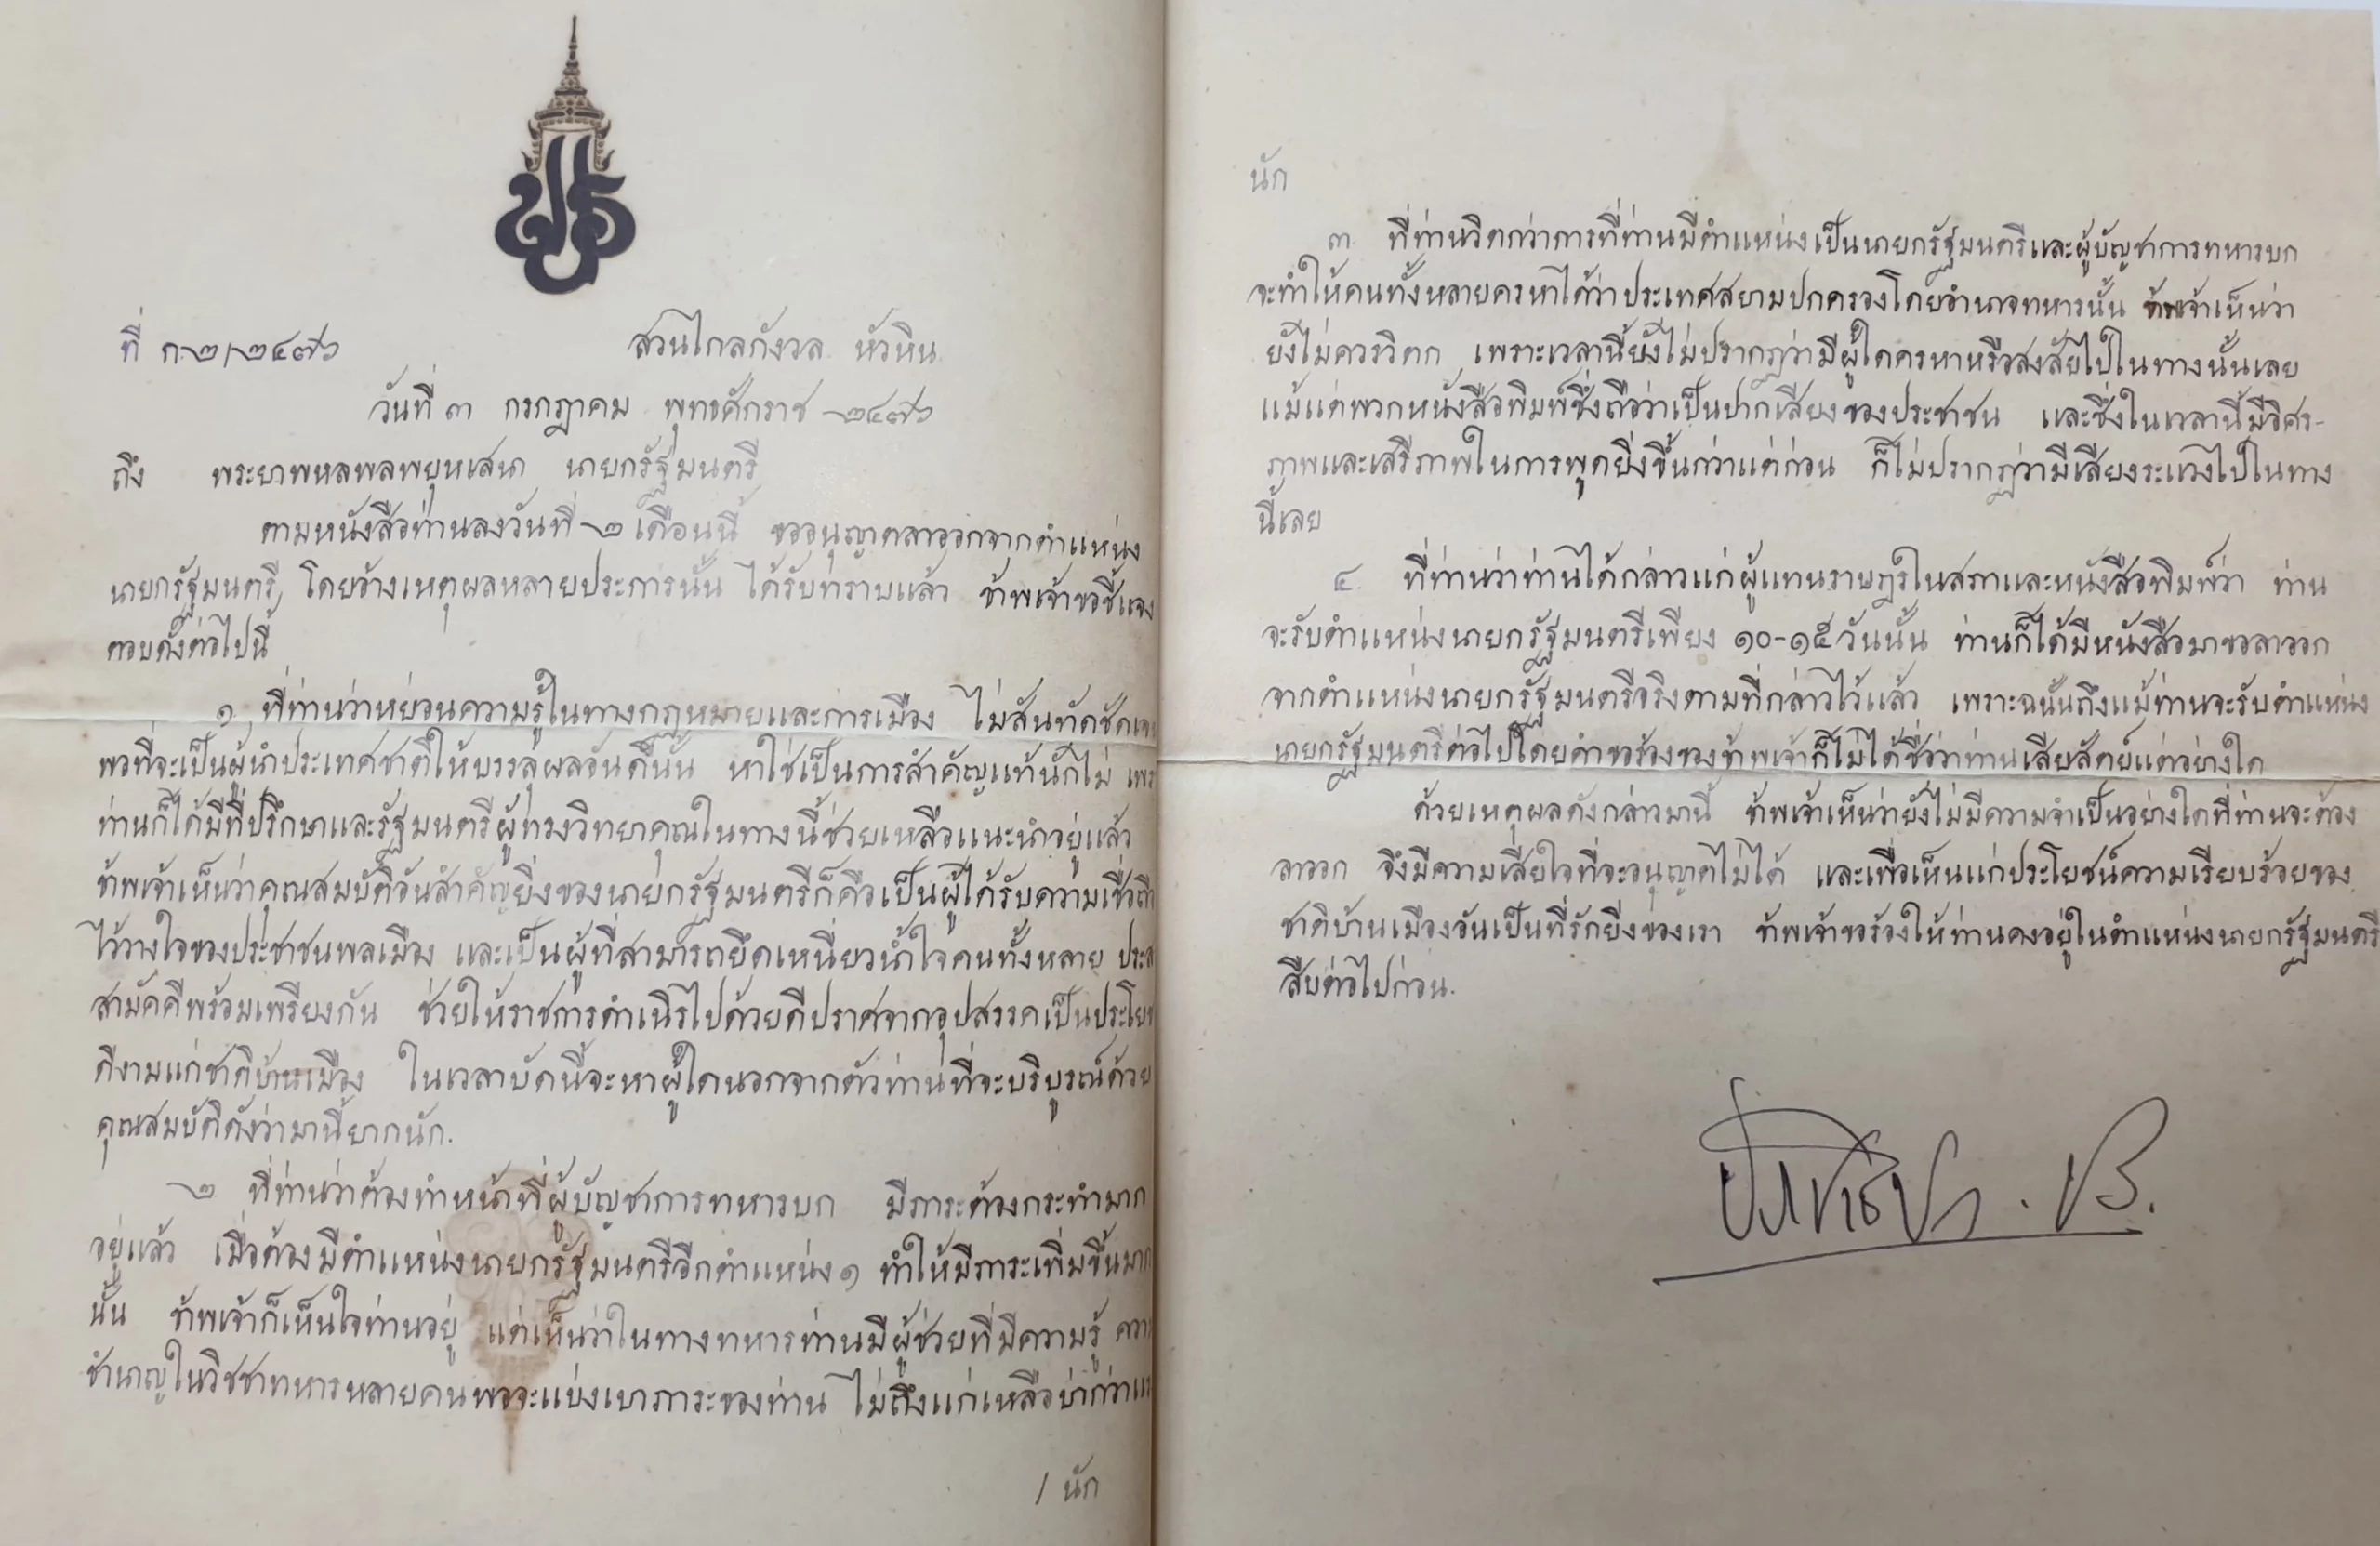 ที่ ก.๒/๒๔๗๖
สวนไกลกังวล หัวหิน
วันที่ ๓ กรกฎาคม พุทธศักราช ๒๔๗๖
ถึง พระยาพหลพลพยุหเสนา นายกรัฐมนตรี
ตามหนังสือท่านลงวันที่ ๒ เดือนนี้ ขออนุญาตลาออกจากตำแหน่ง
นายกรัฐมนตรี โดยอ้างเหตุผลหลายประการนั้น ได้รับทราบแล้ว ข้าพเจ้าขอชี้แจง
ตอบดั่งต่อไปนี้
๑. ที่ท่านว่าหย่อนความรู้ในทางกฎหมายและการเมือง ไม่สันทัดชัดเจน
พอที่จะเป็นผู้นำประเทศชาติให้บรรลุผลอันดีนั้น หาใช่เป็นการสำคัญแท้นักไม่ เพร
ท่านก็ได้มีที่ปรึกษาและรัฐมนตรีผู้ทรงวิทยาคุณในทางนี้ช่วยเหลือแนะนำอยู่แล้ว
ข้าพเจ้าเห็นว่าคุณสมบัติอันสำคัญยิ่งของนายกรัฐมนตรีก็คือเป็นผู้ได้รับความเชื่อถือ
ไว้วางใจของประชาชนพลเมือง และเป็นผู้ที่สามารถยึดเหนี่ยวน้ำใจคนทั้งหลาย ประส
สามัคคีพร้อมเพรียงกัน ช่วยให้ราชการดำเนิรไปด้วยดีปราศจากอุปสรรคเป็นประโยช
ดีงามแก่ชาติบ้านเมือง ในเวลาบัดนี้จะหาผู้ใดนอกจากตัวท่านที่จะบริบูรณ์ด้วย
คุณสมบัติดังว่ามานี้ยากนัก.
๒ ที่ท่านว่าต้องทำหน้าที่ผู้บัญชาการทหารบก มีภาระต้องกระทำมาก
อยู่แล้ว เมื่อต้องมีตำแหน่งนายกรัฐมนตรีอีกตำแหน่ง ๑ ทำให้มีภาระเพิ่มขึ้นมาก
นั้น ข้าพเจ้าก็เห็นใจท่านอยู่ แต่เห็นว่าในทางทหารท่านมีผู้ช่วยที่มีความรู้ ควา
ชำนาญในวิชชาทหารหลายคนพอจะแบ่งเบาภาระของท่าน ไม่ถึงแก่เหลือบ่ากว่าแร
/ นัก
นัก
๓. ที่ท่านวิตกว่าการที่ท่านมีตำแหน่งเป็นนายกรัฐมนตรีและผู้บัญชาการทหารบก
จะทำให้คนทั้งหลายครหาได้ว่าประเทศสยามปกครองโดยอำนาจทหารนั้น ข้าพเจ้าเห็นว่า
ยังไม่ควรวิตก เพราะเวลานี้ยังไม่ปรากฏว่ามีผู้ใดครหาหรือสงสัยไปในทางนั้นเลย
แม้แต่พวกหนังสือพิมพ์ซึ่งถือว่าเป็นปากเสียงของประชาชน และซึ่งในเวลานี้มีอิศร-
ภาพและเสรีภาพในการพูดยิ่งขึ้นกว่าแต่ก่อน ก็ไม่ปรากฏว่ามีเสียงระแวงไปในทาง
นี้เลย
๔. ที่ท่านว่าท่านได้กล่าวแก่ผู้แทนราษฎรในสภาและหนังสือพิมพ์ว่า ท่าน
จะรับตำแหน่งนายกรัฐมนตรีเพียง ๑๐-๑๕ วันนั้น ท่านก็ได้มีหนังสือมาขอลาออก
จากตำแหน่งนายกรัฐมนตรีจริงตามที่กล่าวไว้แล้ว เพราะฉนั้นถึงแม้ท่านจะรับตำแหน่ง
นายกรัฐมนตรีต่อไปโดยคำขอร้องของข้าพเจ้าก็ไม่ได้ชื่อว่าท่านเสียสัตย์แต่อย่างใด
ด้วยเหตุผลดังกล่าวมานี้ ข้าพเจ้าเห็นว่ายังไม่มีความจำเป็นอย่างใดที่ท่านจะต้อง
ลาออก จึงมีความเสียใจที่จะอนุญาตไม่ได้ และเพื่อเห็นแก่ประโยชน์ความเรียบร้อยของ
ชาติบ้านเมืองอันเป็นที่รักยิ่งของเรา ข้าพเจ้าขอร้องให้ท่านคงอยู่ในตำแหน่งนายกรัฐมนตรี
สืบต่อไปก่อน.
ประชาธิปก. ปร.